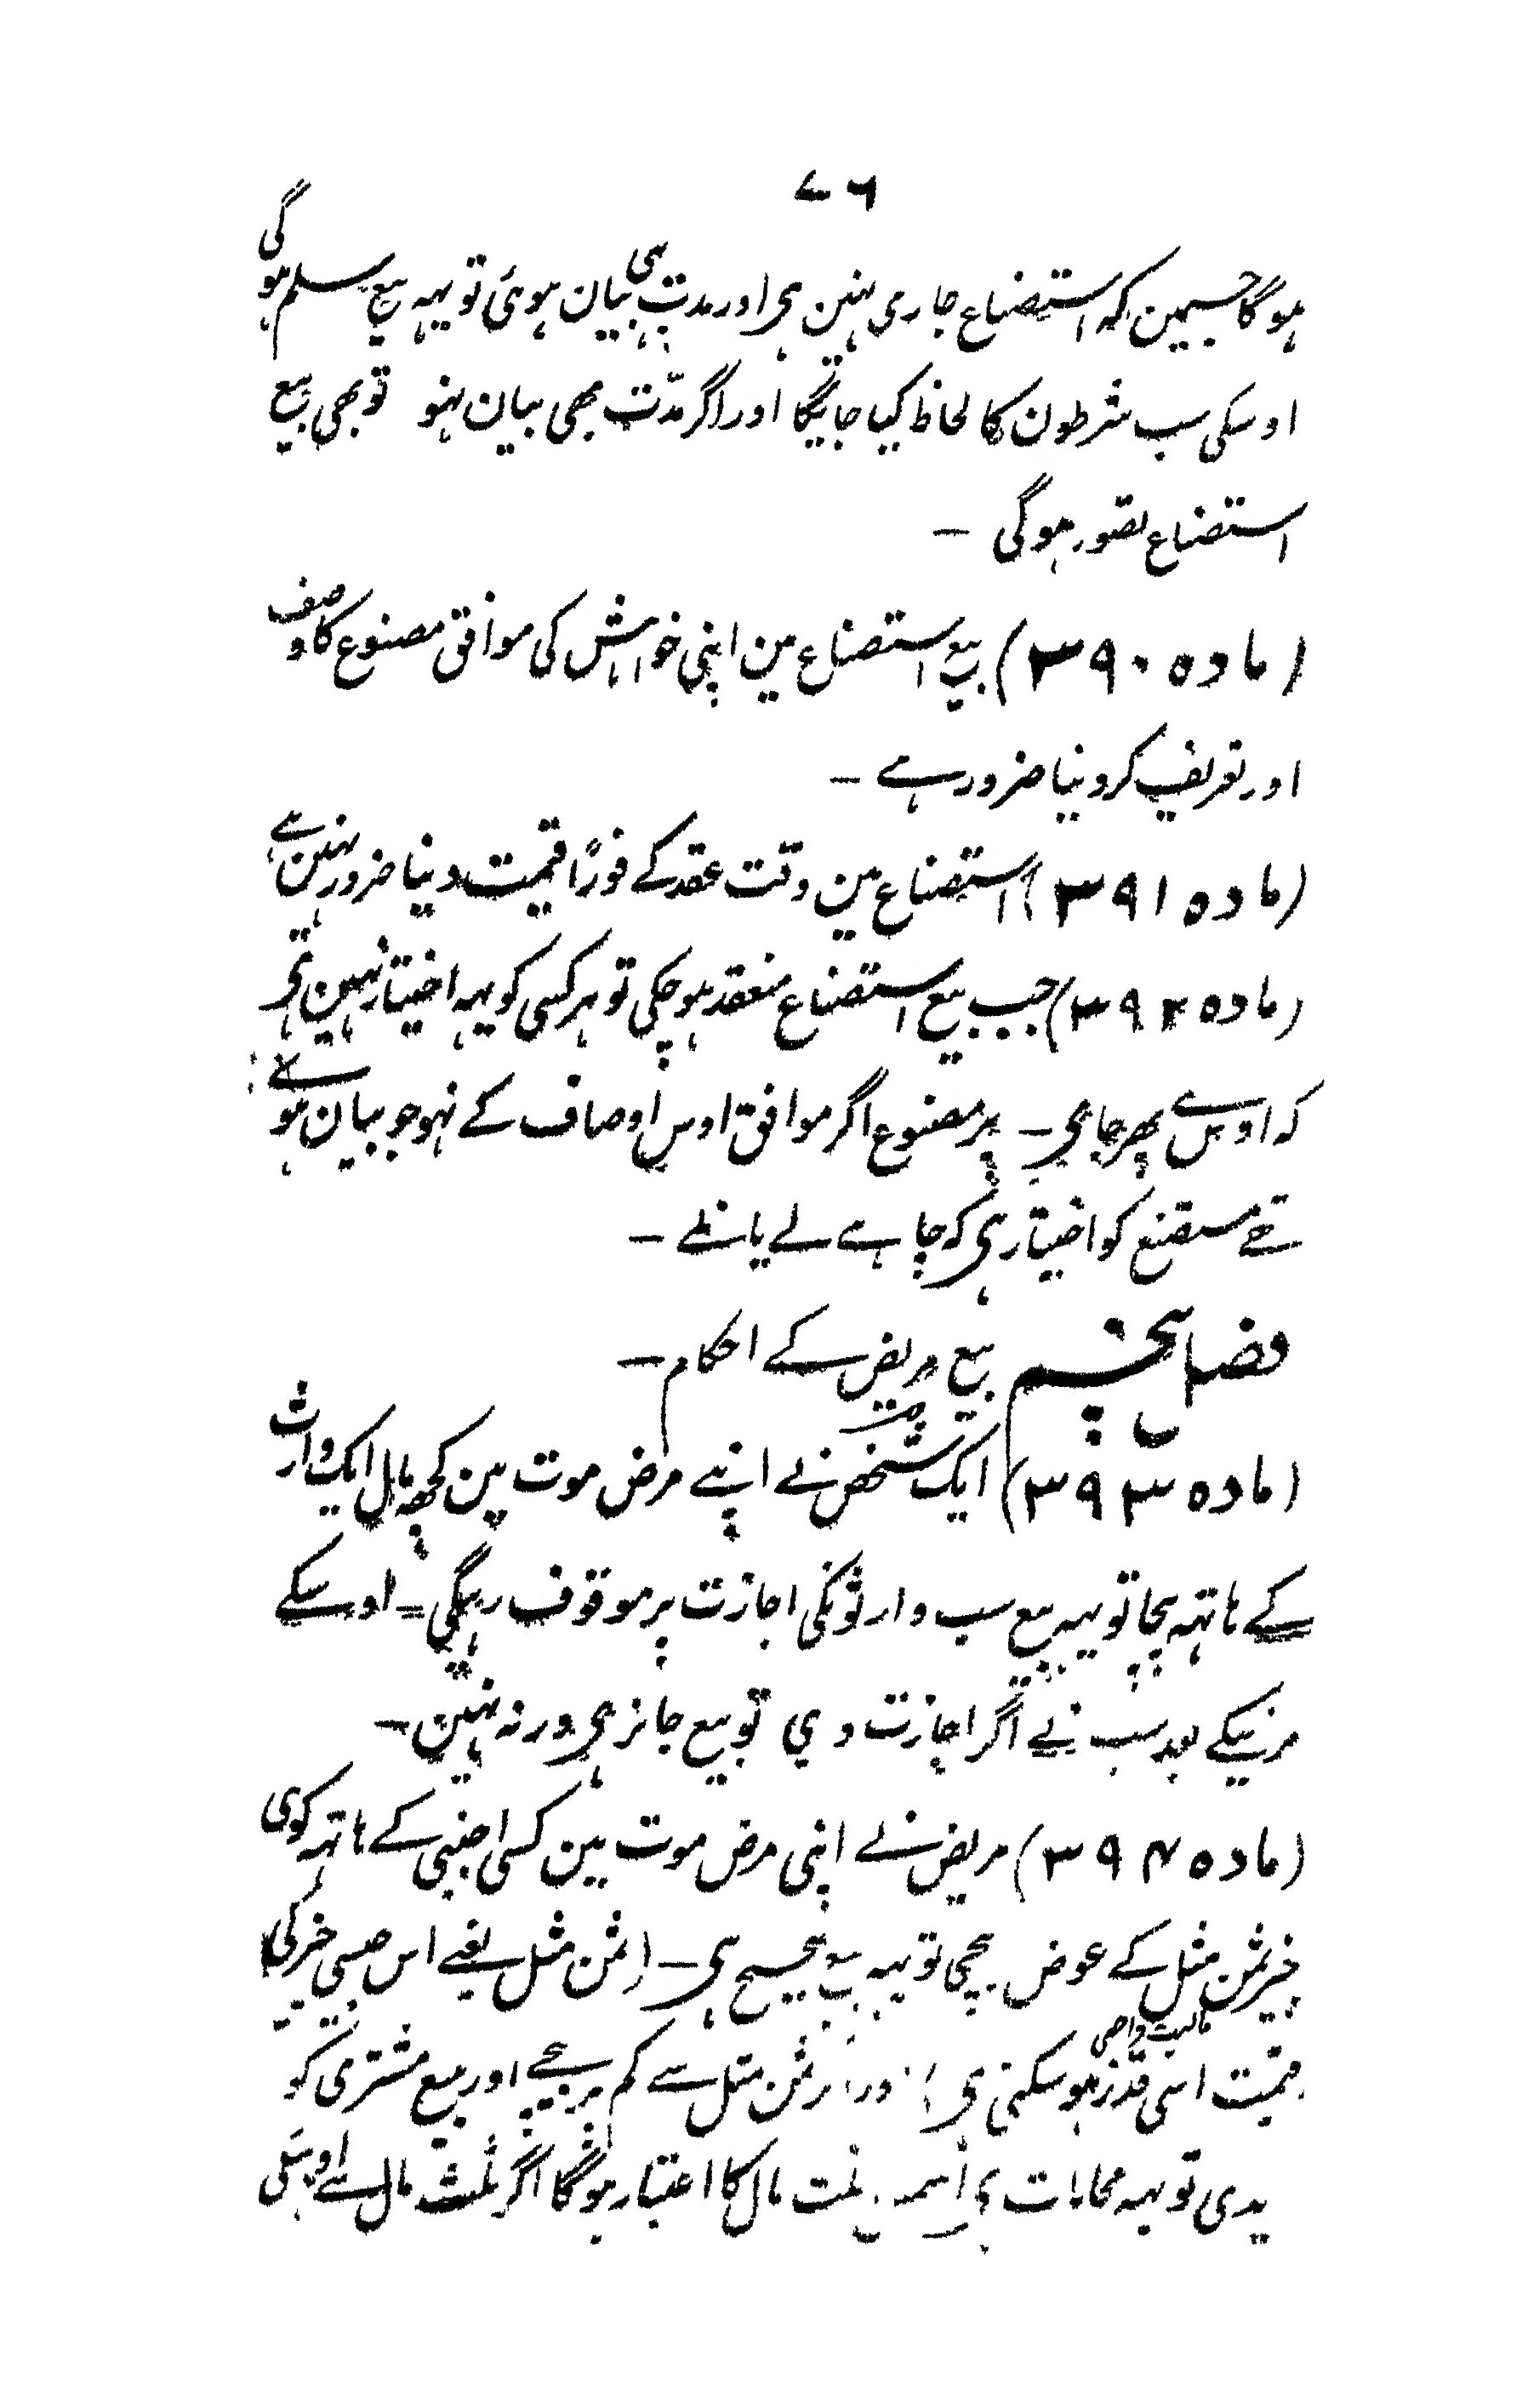 ۷۶
ہوگا جسمین کہ استصناع جاری ہنین ہی اور مدت بہی بیان ہوئی تو یہہ بیع سلم ہوگی
اوسکی سب شرطون کا لحاظ کیا جایگا اور اگر مدّت بھی بیان نہو تو بھی بیع
استصناع تصور ہوگی –
(مادہ ۳۹۰) بیع استصناع مین اپنی خواہش کی موافق مصنوع کا وصف
اور تعریف کر دینا ضرور ہے –
(مادہ ۳۹۱) استصناع مین وقت عقد کے فورًا قیمت دینا ضرور ہنین ہے
(مادہ ۳۹۲) جب بیع استصناع منعقد ہو چکی تو ہر کسی کو یہہ اختیار نہین ہی
کہ اوس سے پھر جاے – پر مصنوع اگر موافق اوس اوصاف کے نہو جو بیان ہوئے
تھے مستصنع کو اختیار ہی کہ چاہے لے یا نلے –
فصل پنجم بیع مریض کے احکام –
(مادہ ۳۹۳) ایک شخص نے اپنے مرض موت مین کچھ مال ایک وارث
کے ہاتہہ بیچا تو یہہ بیع سب وارثونکی اجازت پر موقوف رہیگی – اوسکے
مرنیکے بعد سب نے اگر اجازت دی تو بیع جائز ہی ورنہ نہین –
(مادہ ۳۹۴) مریض نے اپنی مرض موت مین کسی اجنبی کے ہاتہہ کوی
چیز ثمن مثل کے عوض بیچی تو یہہ بیع صحیح ہی – (ثمن مثل یعنے اس جیسی چیز کی
قیمت اسی قدر مالیت واجبی ہو سکتی ہی) اور ثمن مثل سے کم پر بیچے اور بیع مشتری کو
دیدی تو یہہ محابات ہی ثلث مال کا اعتبار ہوگا اگر ثلث مال سے اوسکی